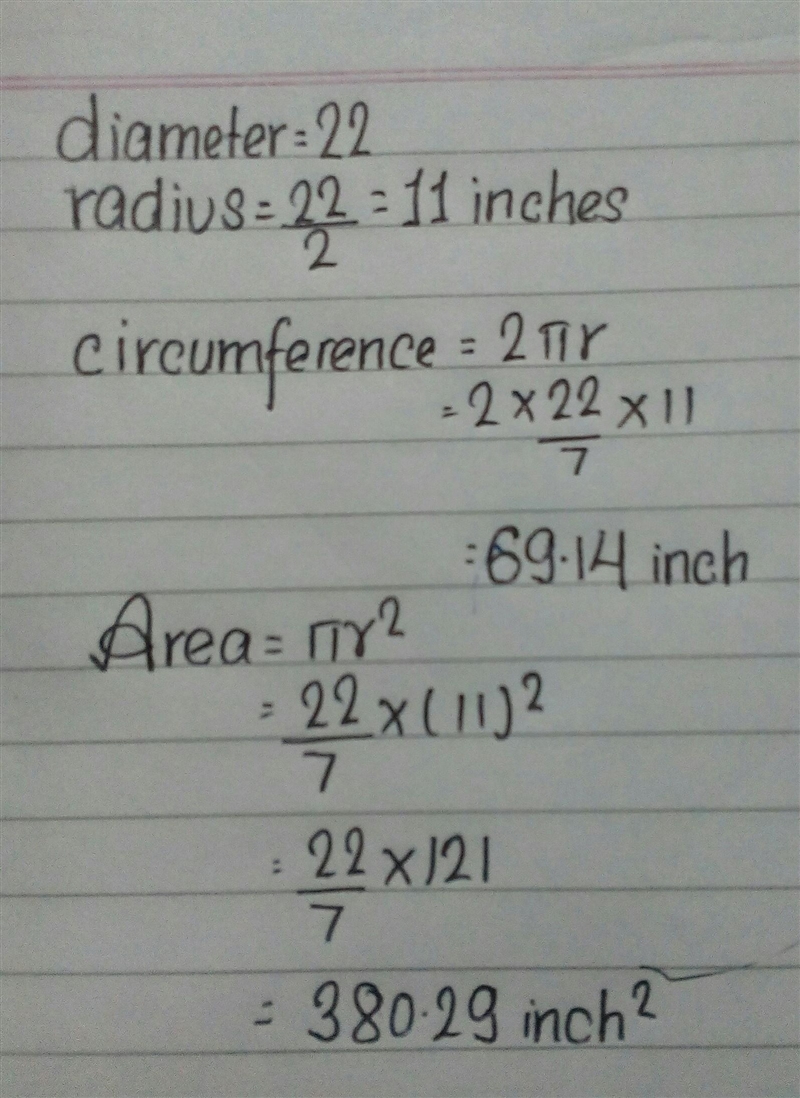 diameter = 22
radius = 22/2 = 11 inches
circumference = 2πr
= 2 × 22/7 × 11
= 69.14 inch
Area = πr²
= 22/7 × (11)²
= 22/7 × 121
= 380.29 inch²